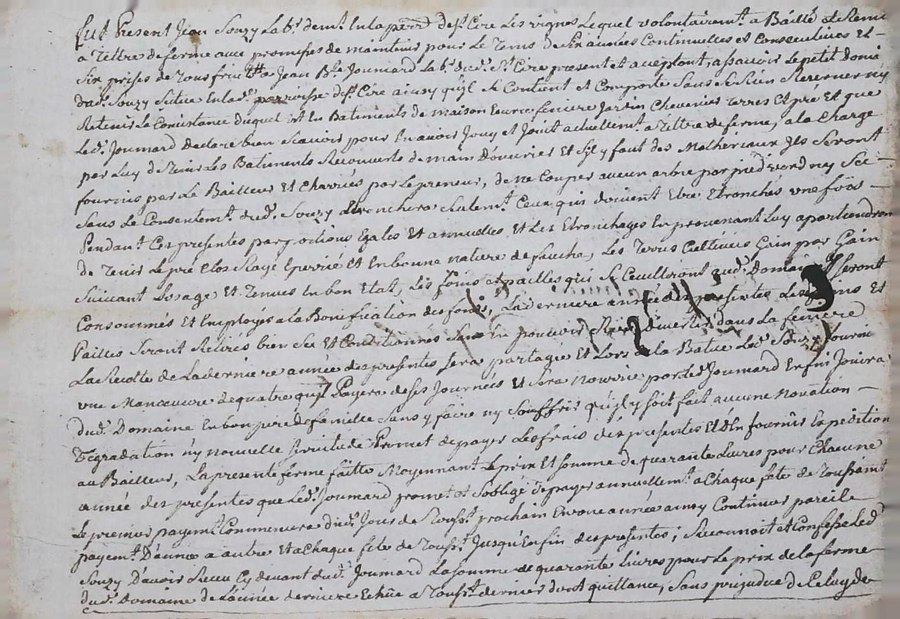 fut Present Jean Souzy Labr. demt. en la parr. de St. Cire Les vignes Lequel volontairemt. a Baillé et Remi
a Tiltre de ferme avec promesses de maintenir pour Le Tems de Six années Continuelles et Consecutives et
Six prises de Tous fruitts a Jean Bte. Joumard Labr. dud. St. Cire present et acceptant, a Scavoir Le petit Domé.
dud. Souzy Situé en lad. parroisse de St. Cire ainsy qu'jl Se Contient et Comporte Sans Se Rien Reserver ny
Retenir La Consistance duquel est En Batiments de maison Ecurie feniere Jardin Chenevier terres Et pré Et que
Led. Joumard declare bien Scavoir pour En avoir Jouy et Jouit actuellemt. a Tiltre de ferme, a la Charge
par Luy de Tenir Les Batiments Recouverts de main d'ouvrier Et S'jl y faut des Matheriaux Jls Seront
fournis par Le Bailleur Et Charriés par Le preneur, de ne Couper aucun arbre par pied verd ny Sec
Sans Le Consentemt. dud. Souzy Etronchera Seulemt. Ceux qui doivent Etre Etronchés une fois
Pendant Ces presentes par portions Egales Et annuelles Et Les Etronchages En provenant Luy apartiendront
de Tenir Le pré Clos Rasé Eperrié et En bonne nature de fauche, Les Terres Cultivées Gain par Gain
Suivant L'usage Et Tenues En bon Etat, Les foins et pailles qui Se Ceuilliront aud. Domaine Seront
Consommés Et Employés a la Bonification des fonds, La derniere année des presentes Les foins Et
Pailles Seront Retirés bien Sec Et Conditionnés Sans En pouvoir Rien divertir dans La feniere
La Recolte de La derniere année des presentes Sera partagé Et Lors de La Batue Led. Souzy fournira
une Manoeuvre de quatre qu'jl Payera de Ses Journées Et Sera Nourrie par Led. Joumard Enfin Jouira
dud. Domaine En bon pere de famille Sans y faire ny Souffrir qu'jl y Soit fait aucune Novation
Degradation ny nouvelle Servitude Promet de payer Les frais des presentes Et d'En fournir Expedition
au Bailleur, La presente ferme faitte Moyennant Le prix Et Somme de quarante Livres pour Chacune
année des presentes que Led. Joumard promet et S'oblige de payer annuellemt. a Chaque fête de Toussaint
Le premier payemt. Commencera dud. Jour de Touss. prochain En une année ainsy Continuer pareils
payemt. D'année a autre Et a Chaque fête de Touss. Jusqu'En fin des presentes; Reconnoit et Confesse Led.
Souzy D'avoir Receu Cy devant dud. Joumard La Somme de quarante Livres pour Le prix de La ferme
dud. Domaine de L'année derniere Echüe a Touss. dernier dont quittance, Sans prejudice de Celuy de